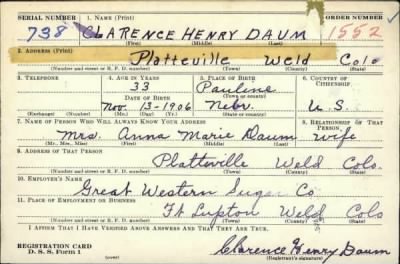 SERIAL NUMBER 1. NAME (Print) ORDER NUMBER
738 CLARENCE HENRY DAUM 1552
(First) (Middle) (Last)
2. ADDRESS (Print)
Platteville Weld Colo
(Number and street or R. F. D. number) (Town) (County) (State)
3. TELEPHONE 4. AGE IN YEARS 5. PLACE OF BIRTH 6. COUNTRY OF CITIZENSHIP
33 Pauline
DATE OF BIRTH (Town or county)
Nov. 13-1906 Nebr. U.S.
(Exchange) (Number) (Mo.) (Day) (Yr.) (State or country)
7. NAME OF PERSON WHO WILL ALWAYS KNOW YOUR ADDRESS 8. RELATIONSHIP OF THAT PERSON
Mrs. Anna Marie Daum wife
(Mr., Mrs., Miss) (First) (Middle) (Last)
9. ADDRESS OF THAT PERSON
Platteville Weld Colo.
(Number and street or R. F. D. number) (Town) (County) (State)
10. EMPLOYER'S NAME
Great Western Sugar Co.
11. PLACE OF EMPLOYMENT OR BUSINESS
Ft Lupton Weld Colo
(Number and street or R. F. D. number) (Town) (County) (State)
I AFFIRM THAT I HAVE VERIFIED ABOVE ANSWERS AND THAT THEY ARE TRUE.
REGISTRATION CARD
D. S. S. Form 1 Clarence Henry Daum
(Registrant's signature)